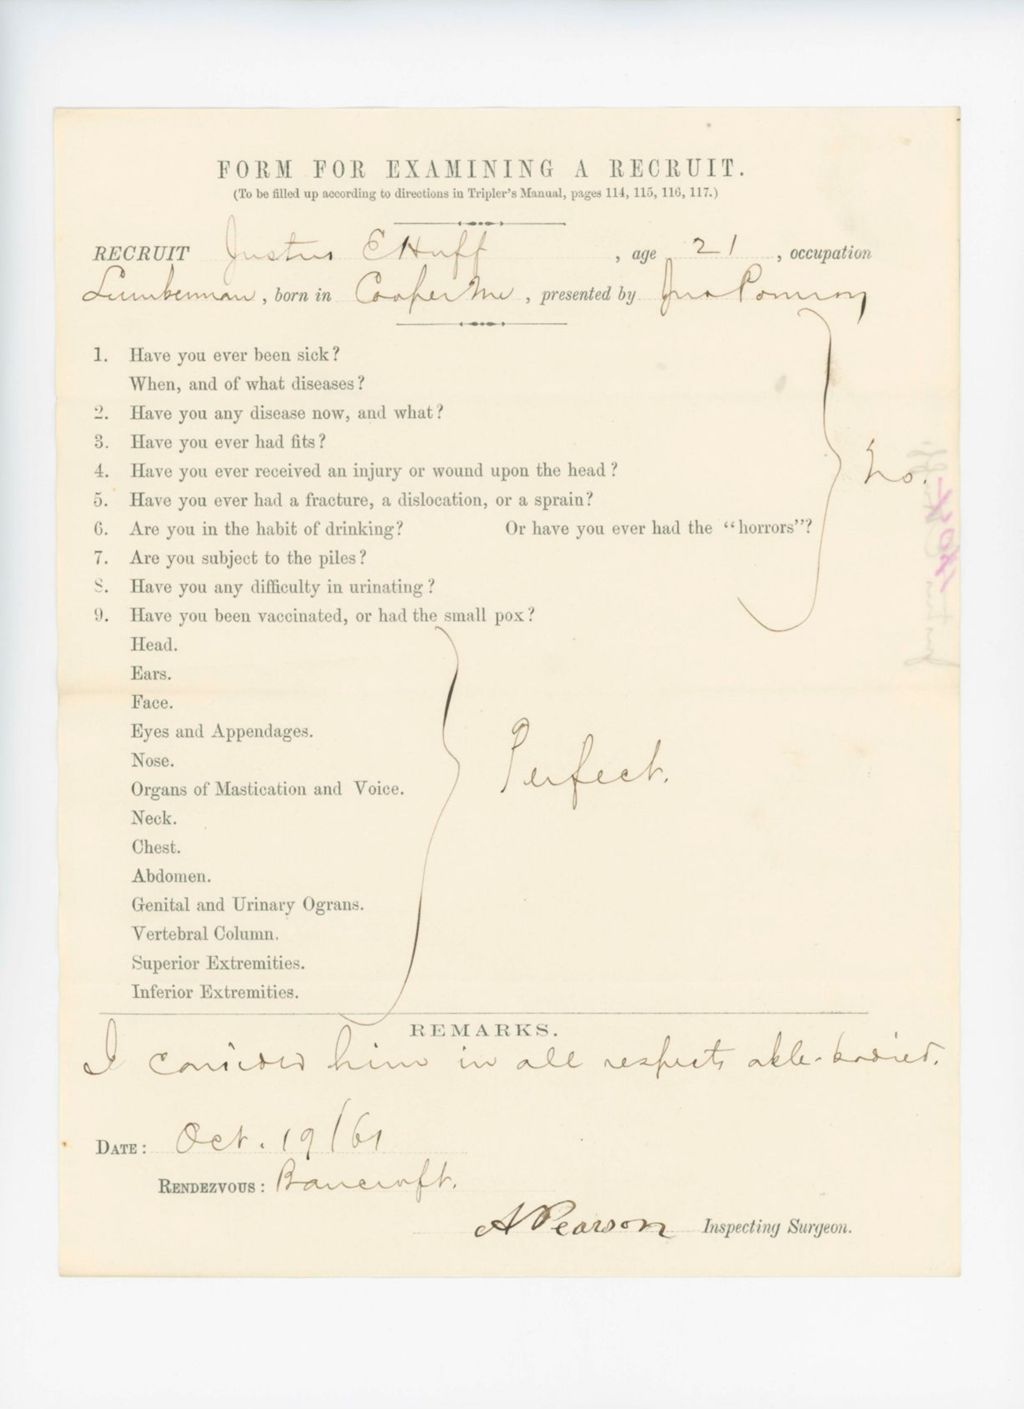 FORM FOR EXAMINING A RECRUIT.
(To be filled up according to directions in Tripler's Manual, pages 114, 115, 116, 117.)
RECRUIT Justus E Huff, age 21, occupation
Lumberman, born in Cooper Me, presented by Jno Pomroy
1. Have you ever been sick?
When, and of what diseases?
2. Have you any disease now, and what?
3. Have you ever had fits?
4. Have you ever received an injury or wound upon the head?
5. Have you ever had a fracture, a dislocation, or a sprain?
6. Are you in the habit of drinking? Or have you ever had the "horrors"?
7. Are you subject to the piles?
8. Have you any difficulty in urinating?
9. Have you been vaccinated, or had the small pox?
No.
Head.
Ears.
Face.
Eyes and Appendages.
Nose.
Organs of Mastication and Voice.
Neck.
Chest.
Abdomen.
Genital and Urinary Ograns.
Vertebral Column.
Superior Extremities.
Inferior Extremities.
Perfect.
REMARKS.
I consider him in all respects able-bodied.
DATE: Oct. 19/61
RENDEZVOUS: Bancroft.
A Pearson Inspecting Surgeon.